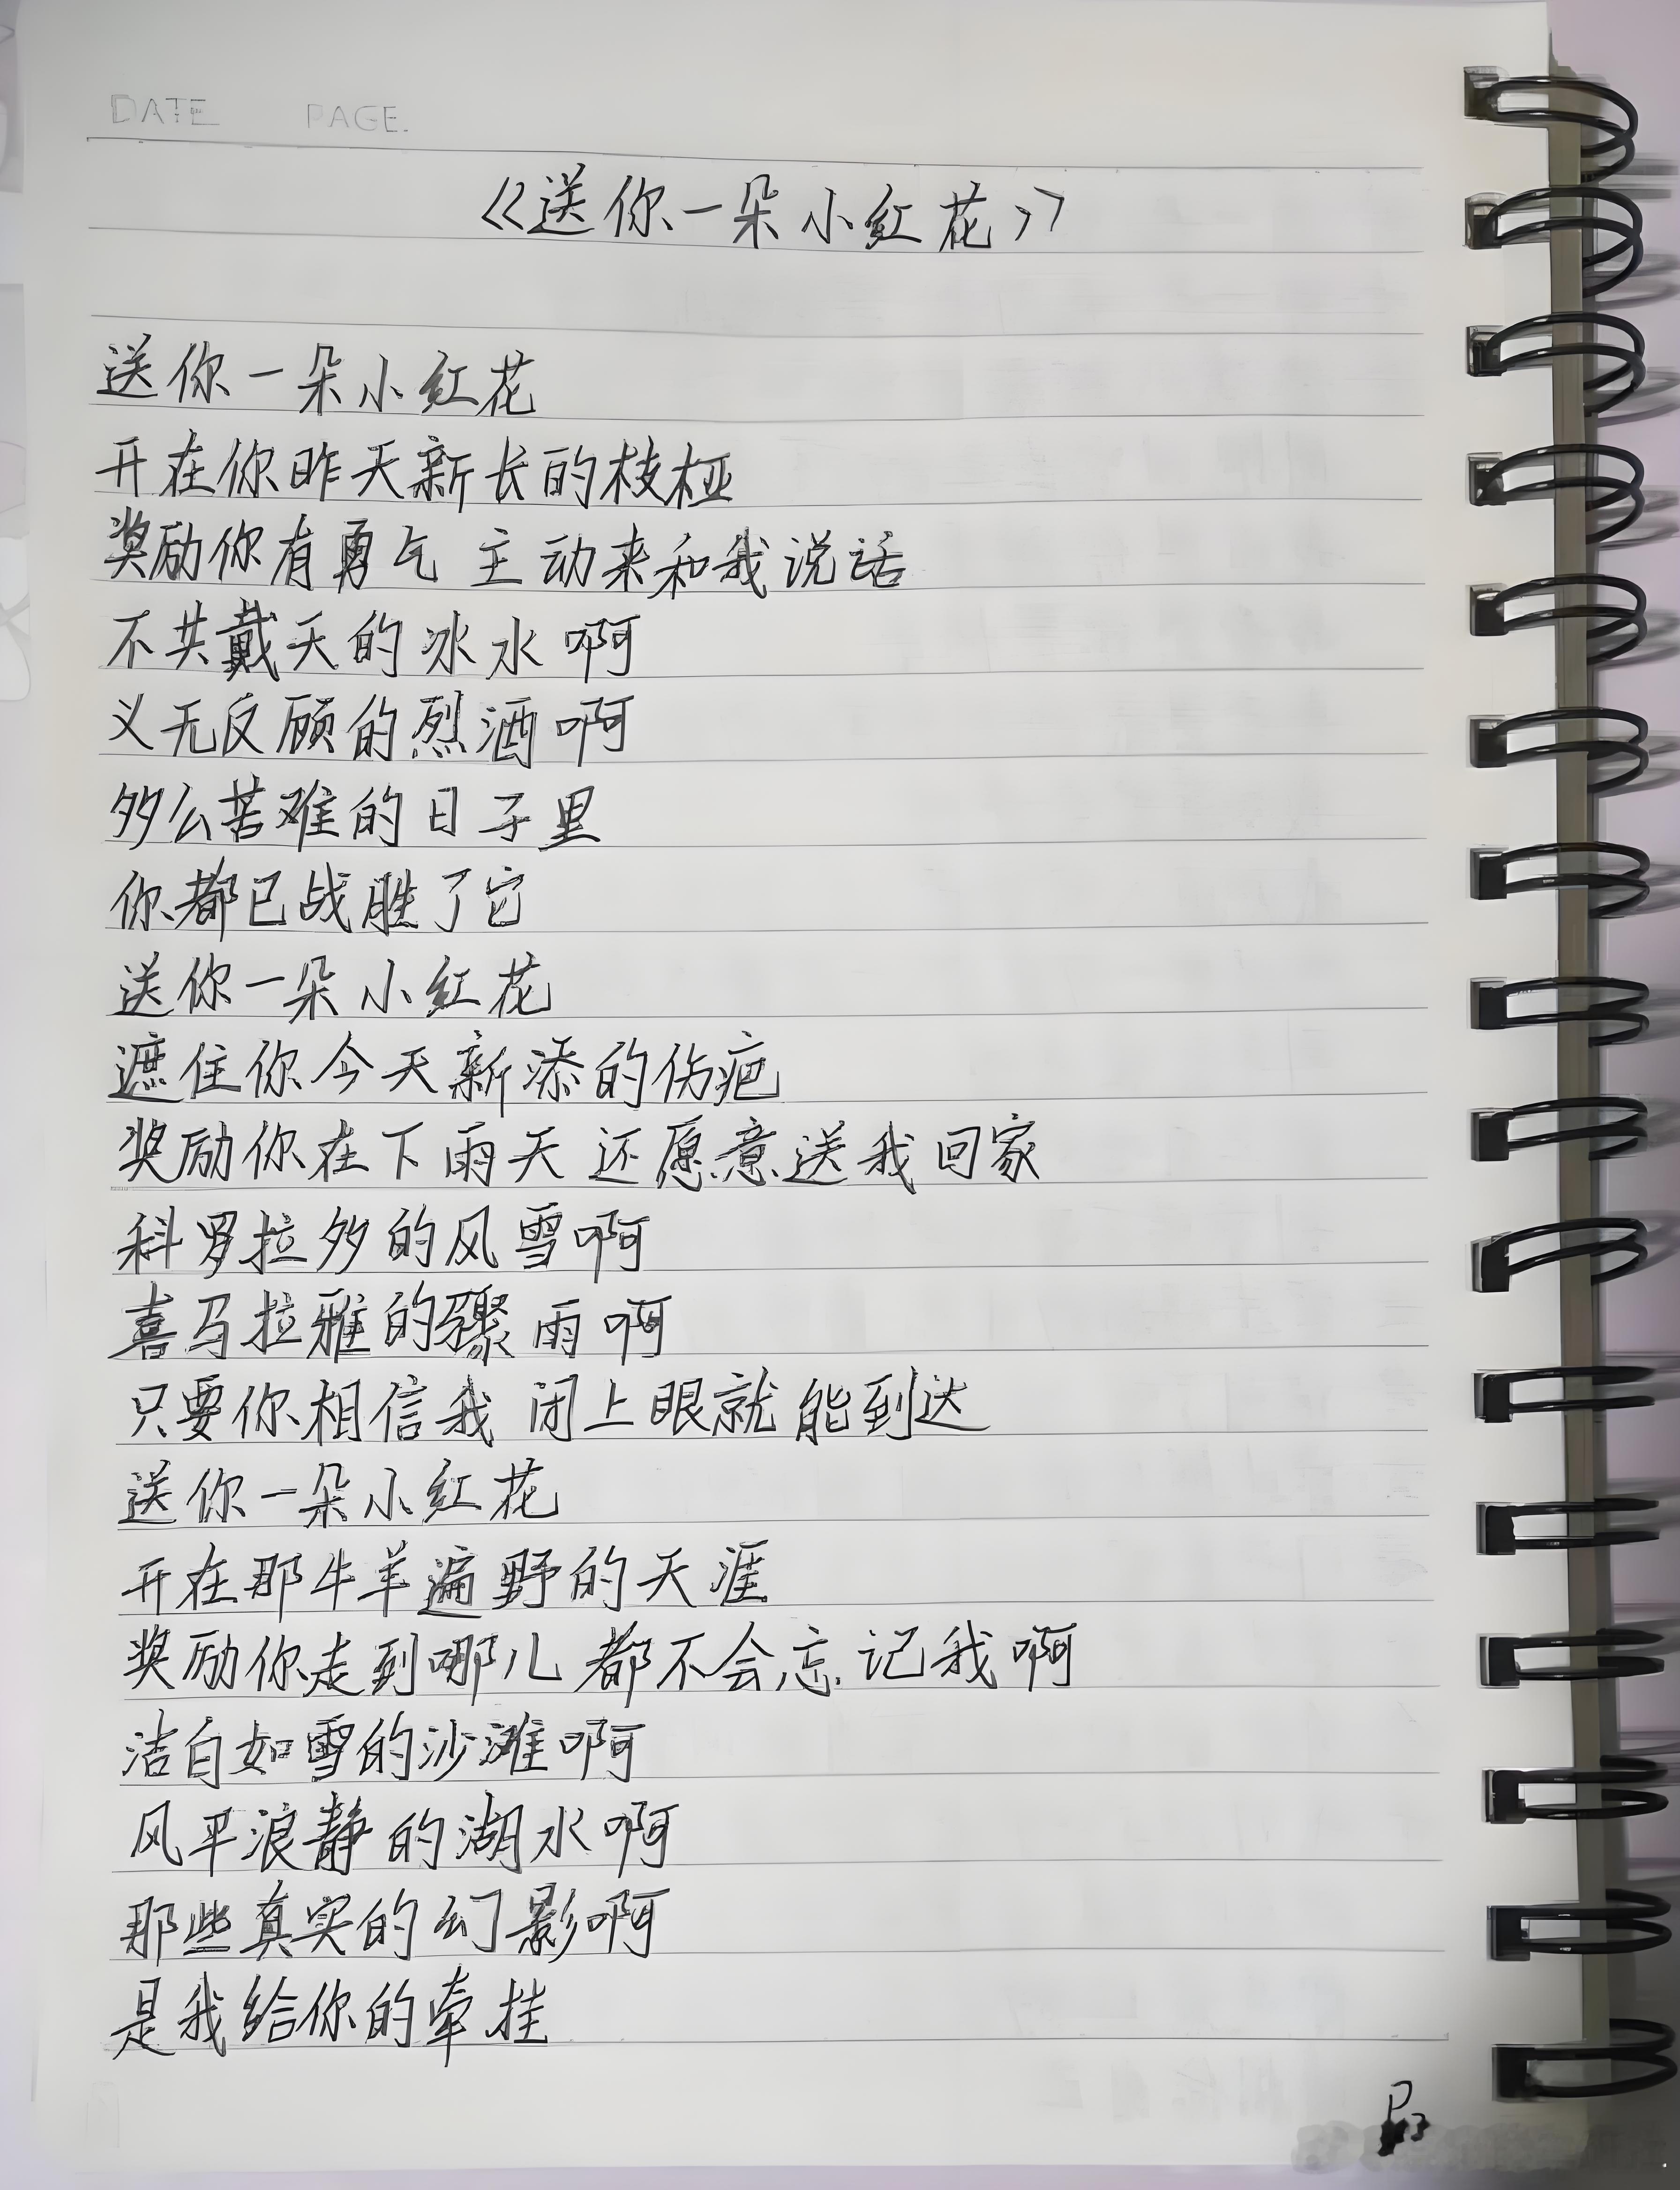 DATE PAGE.
《送你一朵小红花》
送你一朵小红花
开在你昨天新长的枝桠
奖励你有勇气 主动来和我说话
不共戴天的冰水啊
义无反顾的烈酒啊
多么苦难的日子里
你都已战胜了它
送你一朵小红花
遮住你今天新添的伤疤
奖励你在下雨天 还愿意送我回家
科罗拉多的风雪啊
喜马拉雅的骤雨啊
只要你相信我 闭上眼就能到达
送你一朵小红花
开在那牛羊遍野的天涯
奖励你走到哪儿 都不会忘记我啊
洁白如雪的沙滩啊
风平浪静的湖水啊
那些真实的幻影啊
是我给你的牵挂